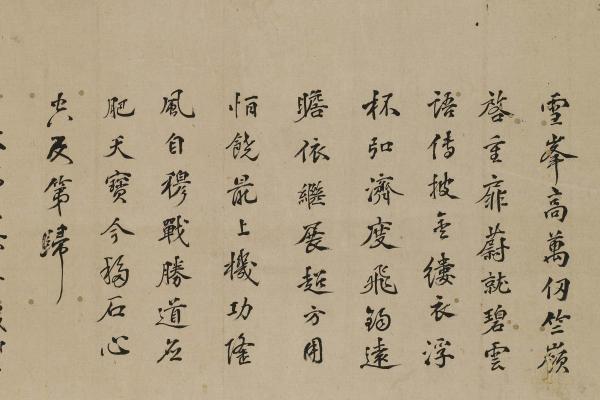 雪峯高萬仞竺嶺
啓重扉蔚就碧雲
語傳披金縷衣浮
杯弘濟度飛錫遠
瞻依繼展超方用
恒饒最上機功隆
風自穆戰勝道
肥天寶今石心
空及第歸